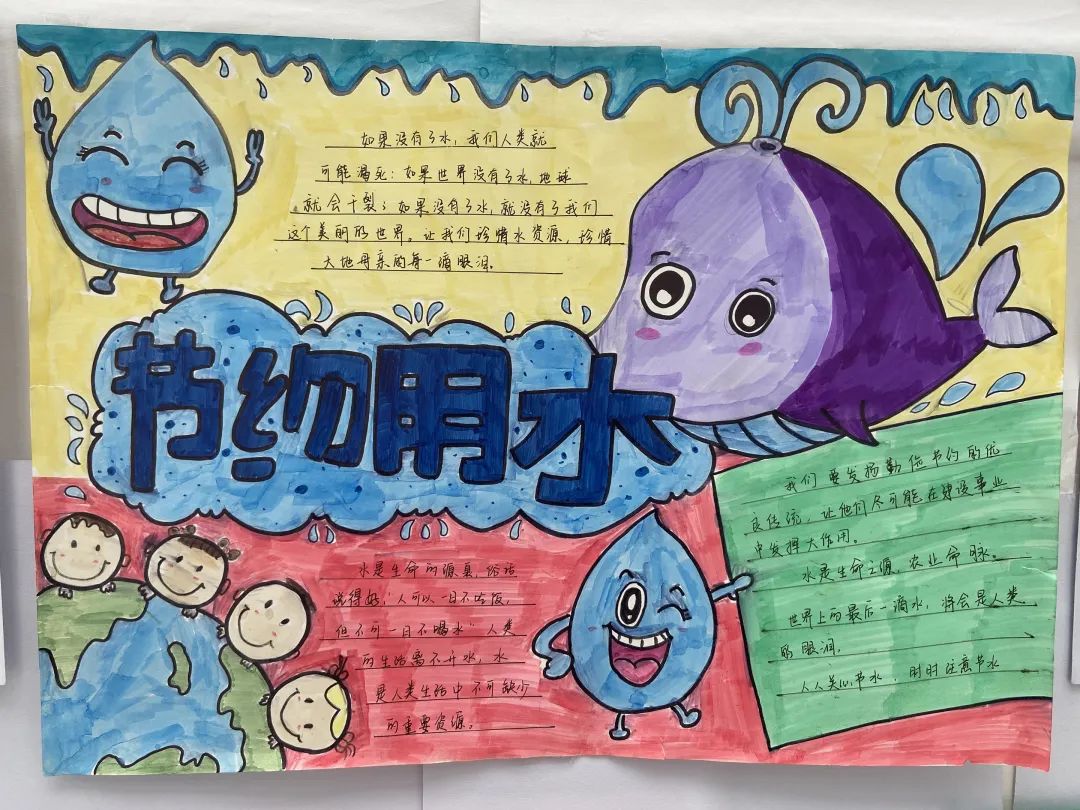 如果没有了水，我们人类就
可能渴死；如果世界没有了水，地球
就会干裂；如果没有了水，就没有了我们
这个美丽的世界。让我们珍惜水资源，珍惜
大地母亲的每一滴眼泪。
节约用水
水是生命的源泉，俗话
说得好，“人可以一日不吃饭，
但不可一日不喝水”人类
的生活离不开水，水
是人类生活中不可缺少
的重要资源。
我们要发扬勤俭节约的优
良传统，让他们尽可能在建设事业
中发挥大作用。
水是生命之源，农业命脉。
世界上的最后一滴水，将会是人类
的眼泪。
人人关心节水，时时注意节水